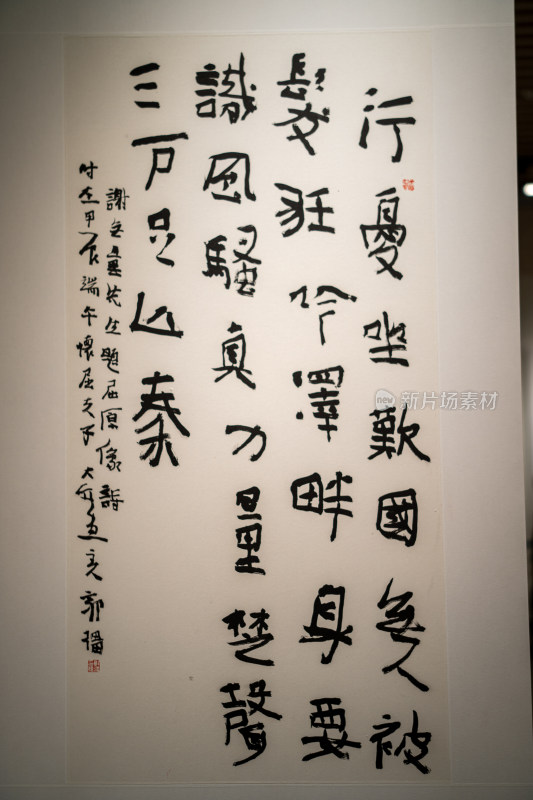 行憂坐歎國無人被
髮狂吟澤畔身要
識風騷真力量楚聲
三戶足亡秦
謝無量先生題屈原像詩
时在甲辰端午懷屈夫子
郭瑙
新片场素材